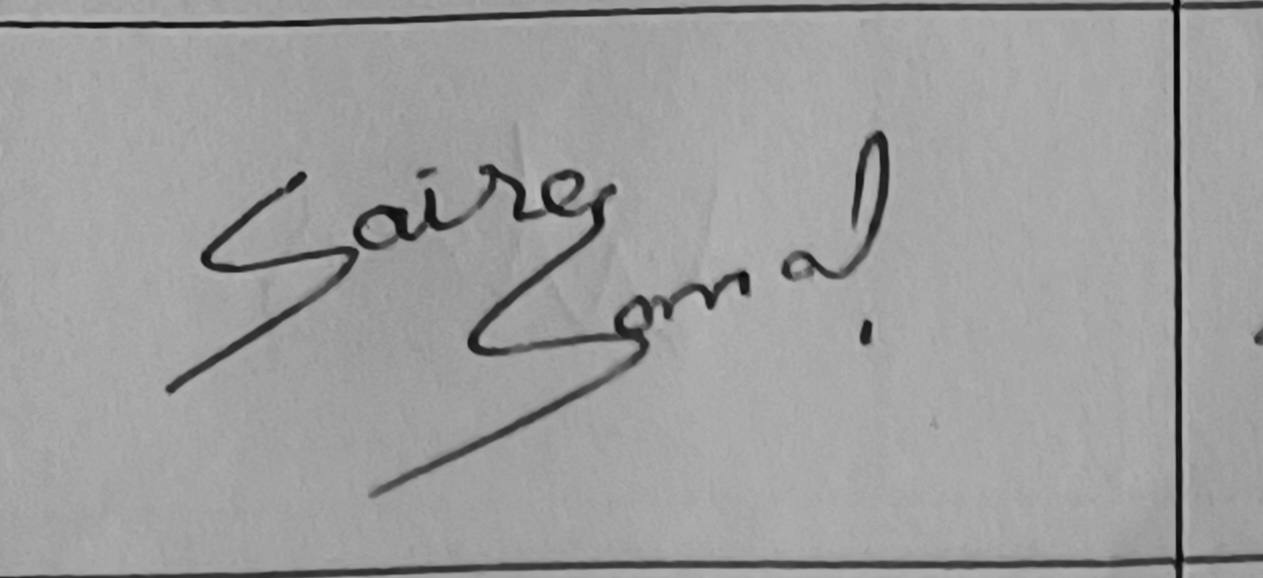 Saira
Somal